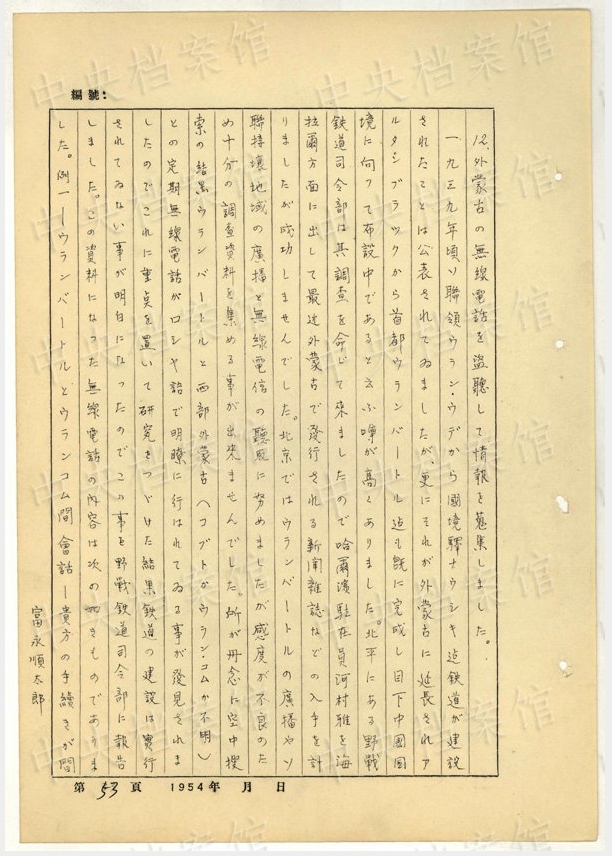 編號：
12、外蒙古の無線電話を盗聴して情報を蒐集しました。
一九三九年頃ソ聯領ウラン・ウデから國境驛ナウシキ迄鉄道が建設
されたことは公表されてゐましたが、更にそれが外蒙古に延長されア
ルタンブラックから首都ウランバートル迄も既に完成し目下中國国
境に向って布設中であると云ふ噂が高くありました。北平にある野戦
鉄道司令部は其調査を命じて来ましたので哈爾濱駐在員河村雅を海
拉爾方面に出して最近外蒙古で發行される新聞雑誌などの入手を計
りましたが成功しませんでした。北京ではウランバートルの廣播やソ
聯接壌地域の廣播と無線電信の聽取に努めましたが感度が不良のた
め十分の調査資料を集める事が出来ませんでした。所が丹念に空中捜
索の結果ウランバートルと西部外蒙古（コブトかウラン・コムか不明）
との定期無線電話がロシヤ語で明瞭に行はれてゐる事が發見されま
したのでこれに重点を置いて研究をつゞけた結果鉄道の建設は實行
されてゐない事が明白になったのでこの事を野戦鉄道司令部に報告
しました。この資料になった無線電話の内容は次の如きものでありま
した。例一―ウランバートルとウランコム間會話―貴方の手續きが間
富永順太郎
第 53 頁 1954年 月 日
中央档案馆